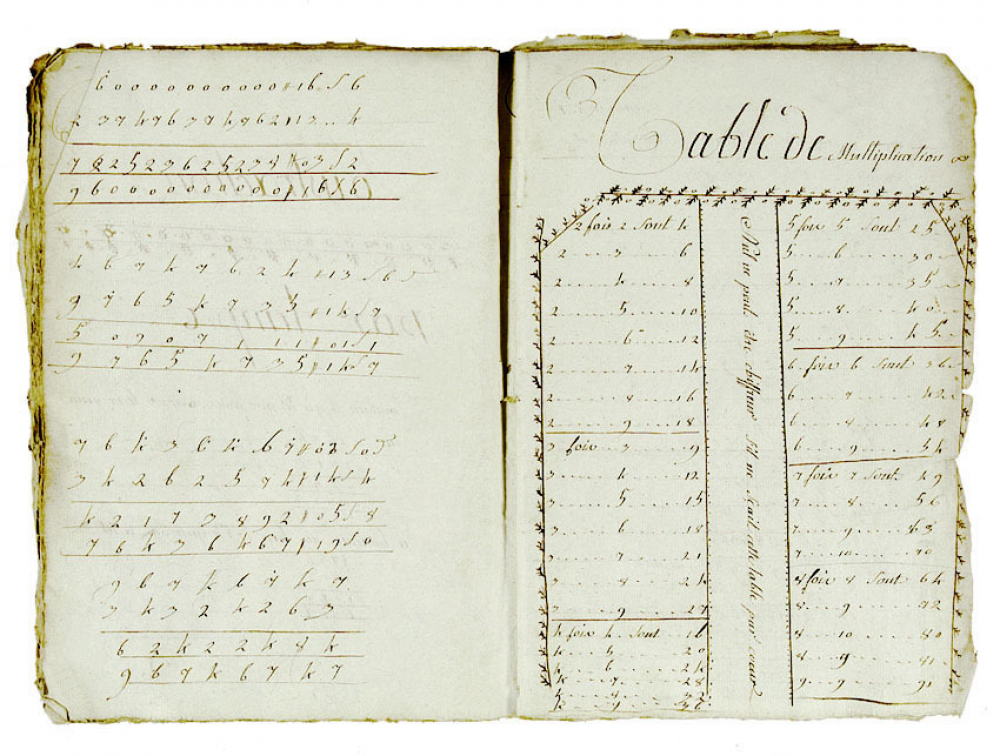 6 0 0 0 0 0 0 0 0 0 0 ll 16 s 6
2 3 7 4 7 6 3 7 4 7 6 2 ll 13 4
7 6 2 5 2 3 6 2 5 2 3 8 ll 03 s 2
9 6 0 0 0 0 0 0 0 0 0 0 ll 16 6
4 6 7 4 7 6 2 4 ll 13 s 6
9 7 6 5 4 7 3 5 ll 14 s 7
5 0 9 0 7 1 1 1 ll 01 s 1
9 7 6 5 4 7 3 5 ll 14 s 7
7 6 4 3 6 4 6 7 ll 02 s 0
3 4 2 6 2 5 7 4 ll 14 s 4
4 2 1 7 3 8 9 2 ll 05 s 8
7 6 4 3 6 4 6 7 ll 19 s 0
9 6 7 4 6 7 4 7
3 4 3 2 4 2 6 3
6 2 4 2 2 4 8 4
9 6 7 4 6 7 4 7
Table de Multiplication
2 fois 2 sont 4
2 .. 3 .... 6
2 .... 4 .... 8
2 .... 5 .... 10
2 .... 6 .... 12
2 .... 7 .... 14
2 .... 8 .... 16
2 .... 9 .... 18
3 fois 3 .... 9
3 .... 4 .... 12
3 .... 5 .... 15
3 .... 6 .... 18
3 .... 7 .... 21
3 .... 8 .... 24
3 .... 9 .... 27
4 fois 4 sont 16
4 .... 5 .... 20
4 .... 6 .... 24
4 .... 7 .... 28
4 .... 8 .... 32
4 .... 9 .... 36
Nul ne peut etre chiffreur s'il ne scait cette table par coeur
5 fois 5 sont 25
5 .... 6 .... 30
5 .... 7 .... 35
5 .... 8 .... 40
5 .... 9 .... 45
6 fois 6 sont 36
6 .... 7 .... 42
6 .... 8 .... 48
6 .... 9 .... 54
7 fois 7 sont 49
7 .... 8 .... 56
7 .... 9 .... 63
7 .... 10 .... 70
8 fois 8 sont 64
8 .... 9 .... 72
8 .... 10 .... 80
8 .... 9 .... 81
9 .... 9 .... 91